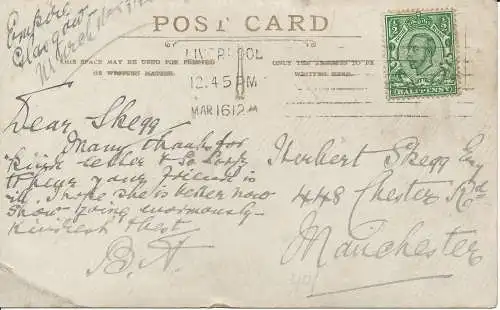 Empire
Glasgow
POST CARD
THIS SPACE MAY BE USED FOR PRINTED
OR WRITTEN MATTER.
ONLY THE ADDRESS TO BE
WRITTEN HERE.
LIVERPOOL
12.45 PM
MAR 16 12
HALFPENNY
Dear Skegg
Many thanks for
kind letter & so sorry
to hear your friend is
ill. I hope she is better now
Show going enormously
Kindest thest
B.A.
Herbert Skegg Esq
448 Chester Rd
Manchester